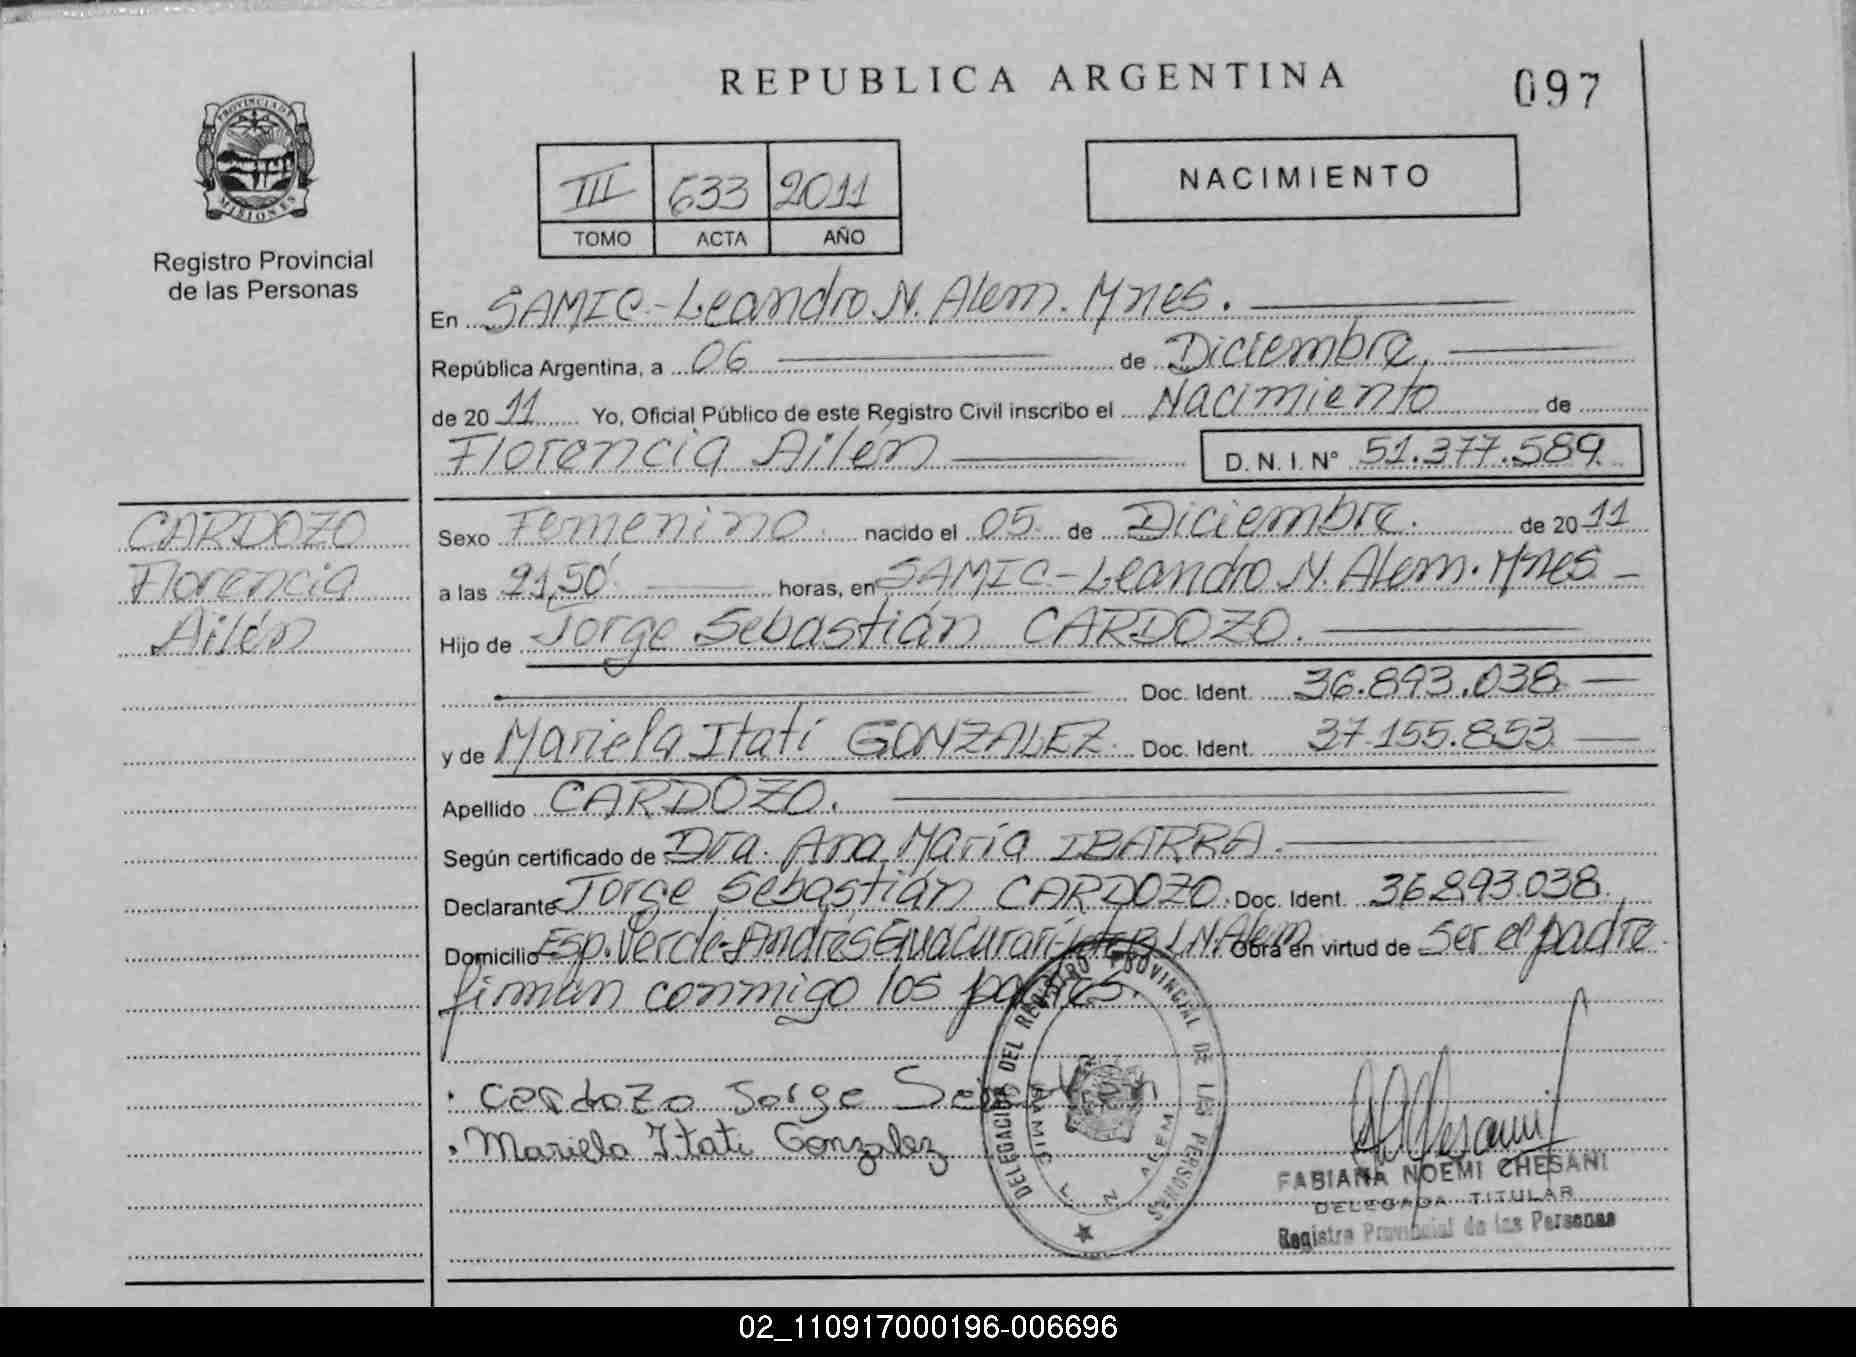 REPUBLICA ARGENTINA
097
PROVINCIA DE MISIONES
Registro Provincial
de las Personas
III 633 2011
TOMO ACTA AÑO
NACIMIENTO
En SAMIC-Leandro N. Alem. Mnes.
República Argentina, a 06 de Diciembre.
de 20 11 Yo, Oficial Público de este Registro Civil inscribo el Nacimiento de
Florencia Ailén D.N.I. Nº 51.377.589
CARDOZO
Florencia
Ailén
Sexo Femenino. nacido el 05 de Diciembre. de 20 11
a las 21,50 horas, en SAMIC-Leandro N. Alem. Mnes
Hijo de Jorge Sebastián CARDOZO.
Doc. Ident. 36.893.038
y de Mariela Itatí GONZALEZ. Doc. Ident. 37.155.853
Apellido CARDOZO.
Según certificado de Dra. Ana María IBARRA.
Declarante Jorge Sebastián CARDOZO. Doc. Ident. 36.893.038.
Domicilio Esp. Verde-Andrés Guacurarí- L.N. Alem Obra en virtud de ser el padre.
firman conmigo los padres.
Cardozo Jorge
Mariela Itati Gonzalez
DELEGACION DEL REGISTRO PROVINCIAL DE LAS PERSONAS
SAMIC L. N. ALEM
FABIANA NOEMI CHESANI
DELEGADA TITULAR
Registro Provincial de las Personas
02_110917000196-006696